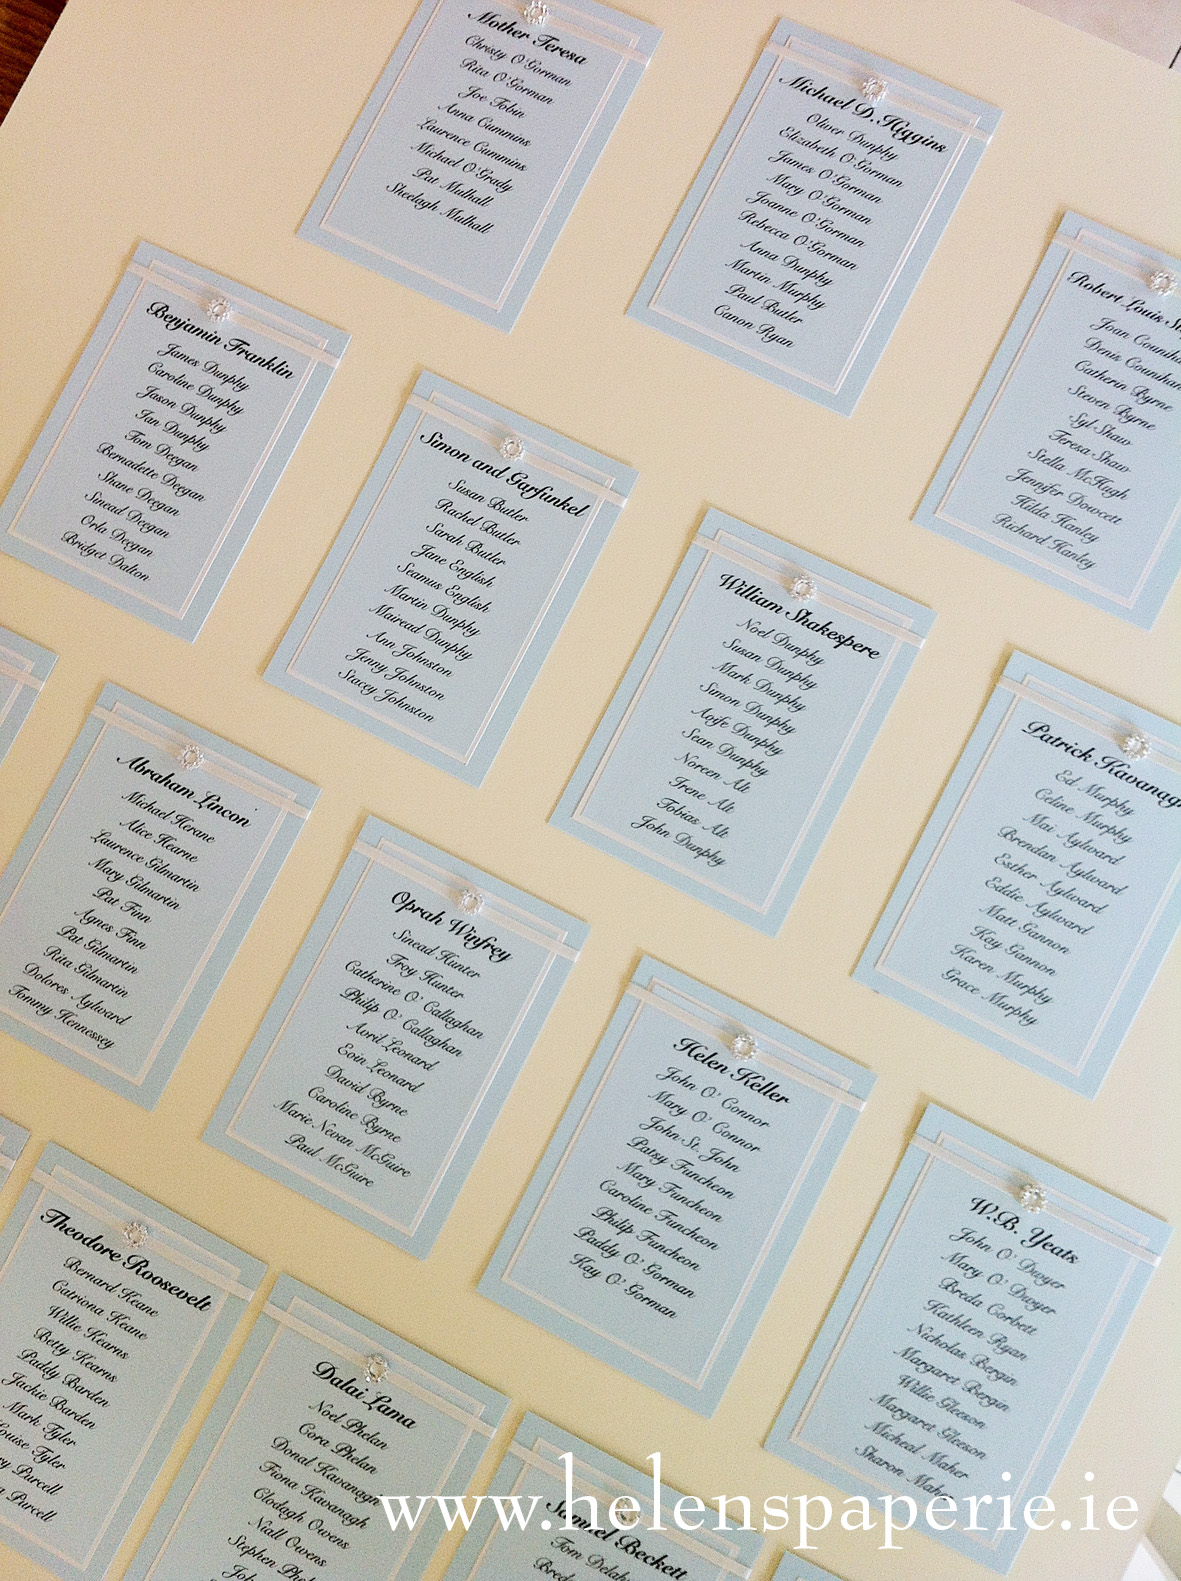 Mother Teresa
Christy O'Gorman
Rita O'Gorman
Joe Tobin
Anna Cummins
Laurence Cummins
Michael O'Grady
Pat Mulhall
Sheelagh Mulhall
Michael D. Higgins
Oliver Dunphy
Elizabeth O'Gorman
James O'Gorman
Mary O'Gorman
Joanne O'Gorman
Rebecca O'Gorman
Anna Dunphy
Martin Murphy
Paul Butler
Canon Ryan
Robert Louis
Joan
Denis
Catherin Byrne
Steven Byrne
Syl Shaw
Teresa Shaw
Stella McHugh
Jennifer Dowcett
Hilda Hanley
Richard Hanley
Benjamin Franklin
James Dunphy
Caroline Dunphy
Jason Dunphy
Ian Dunphy
Tom Deegan
Bernadette Deegan
Shane Deegan
Sinead Deegan
Orla Deegan
Bridget Dalton
Simon and Garfunkel
Susan Butler
Rachel Butler
Sarah Butler
Jane English
Seamus English
Martin Dunphy
Mairead Dunphy
Ann Johnston
Jenny Johnston
Stacey Johnston
William Shakespere
Noel Dunphy
Susan Dunphy
Mark Dunphy
Simon Dunphy
Aoife Dunphy
Sean Dunphy
Noreen Alt
Irene Alt
Tobias Alt
John Dunphy
Patrick
Ed Murphy
Celine Murphy
Mai Aylward
Brendan Aylward
Esther Aylward
Eddie Aylward
Matt Gannon
Kay Gannon
Karen Murphy
Grace Murphy
Abraham Lincon
Michael Herane
Alice Hearne
Laurence Gilmartin
Mary Gilmartin
Pat Finn
Agnes Finn
Pat Gilmartin
Rita Gilmartin
Dolores Aylward
Tommy Hennessey
Oprah Winfrey
Sinead Hunter
Troy Hunter
Catherine O' Callaghan
Philip O' Callaghan
Avril Leonard
Eoin Leonard
David Byrne
Caroline Byrne
Marie Nevan McGuire
Paul McGuire
Helen Keller
John O' Connor
Mary O' Connor
John St. John
Patsy Funcheon
Mary Funcheon
Caroline Funcheon
Philip Funcheon
Paddy O' Gorman
Kay O' Gorman
W.B. Yeats
John O' Dwyer
Mary O' Dwyer
Breda Corbett
Kathleen Ryan
Nicholas Bergin
Margaret Bergin
Willie Gleeson
Margaret Gleeson
Micheal Maher
Sharon Maher
Theodore Roosevelt
Bernard Keane
Catriona Keane
Willie Kearns
Betty Kearns
Paddy Barden
Jackie Barden
Mark Tyler
Tyler
Purcell
Purcell
Dalai Lama
Noel Phelan
Cora Phelan
Donal Kavanagh
Fiona Kavanagh
Clodagh Owens
Niall Owens
Stephen
Samuel Beckett
Tom
www.helenspaperie.ie